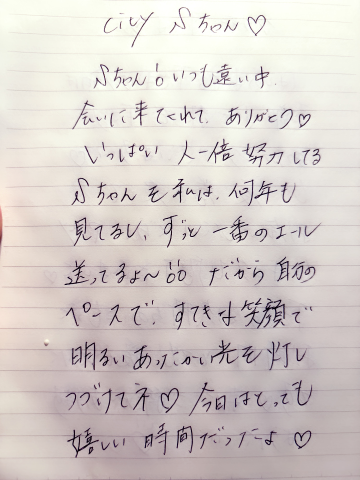 city Sちゃん♡
Sちゃん いつも遠い中、
会いに来てくれて、ありがとう♡
いっぱい 人一倍 努力してる
Sちゃんを私は、何年も
見てるし、ずっと 一番のエール
送ってるよ〜 だから 自分の
ペースで、すてきな笑顔で
明るい あったかい光を灯し
つづけてネ♡ 今日はとっても
嬉しい 時間だったよ♡